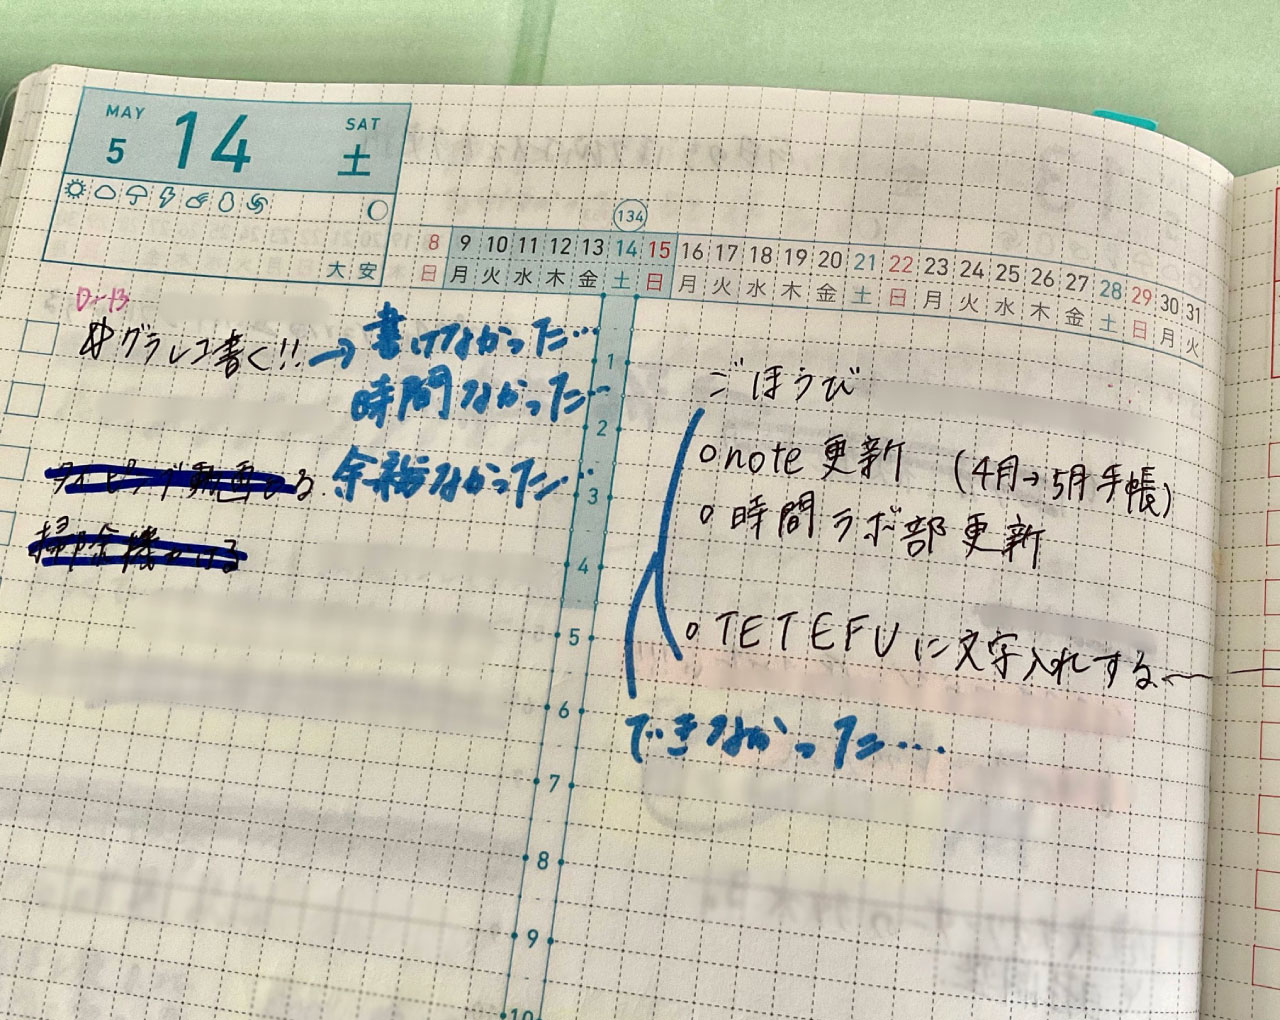 MAY
SAT
5 14 土
大安
134
8 9 10 11 12 13 14 15 16 17 18 19 20 21 22 23 24 25 26 27 28 29 30 31
日 月 火 水 木 金 土 日 月 火 水 木 金 土 日 月 火 水 木 金 土 日 月 火
グラレコ書く!! → 書けなかった…
時間なかった…
タイピング動画とる 余裕なかった…
掃除機かける
1
2
3
4
5
6
7
8
9
10
ごほうび
note更新 (4月→5月手帳)
時間ラボ部更新
TETEFUに文字入れする←
できなかった…